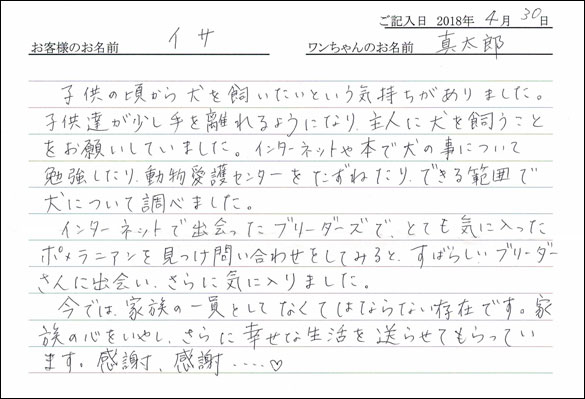 ご記入日 2018年 4月 30日
お客様のお名前 イサ ワンちゃんのお名前 真太郎
子供の頃から犬を飼いたいという気持ちがありました。
子供達が少し手を離れるようになり、主人に犬を飼うこと
をお願いしていました。インターネットや本で犬の事について
勉強したり、動物愛護センターをたずねたり、できる範囲で
犬について調べました。
インターネットで出会ったブリーダーズで、とても気に入った
ポメラニアンを見つけ問い合わせをしてみると、すばらしいブリーダー
さんに出会い、さらに気に入りました。
今では、家族の一員としてなくてはならない存在です。家
族の心をいやし、さらに幸せな生活を送らせてもらってい
ます。感謝、感謝……♡